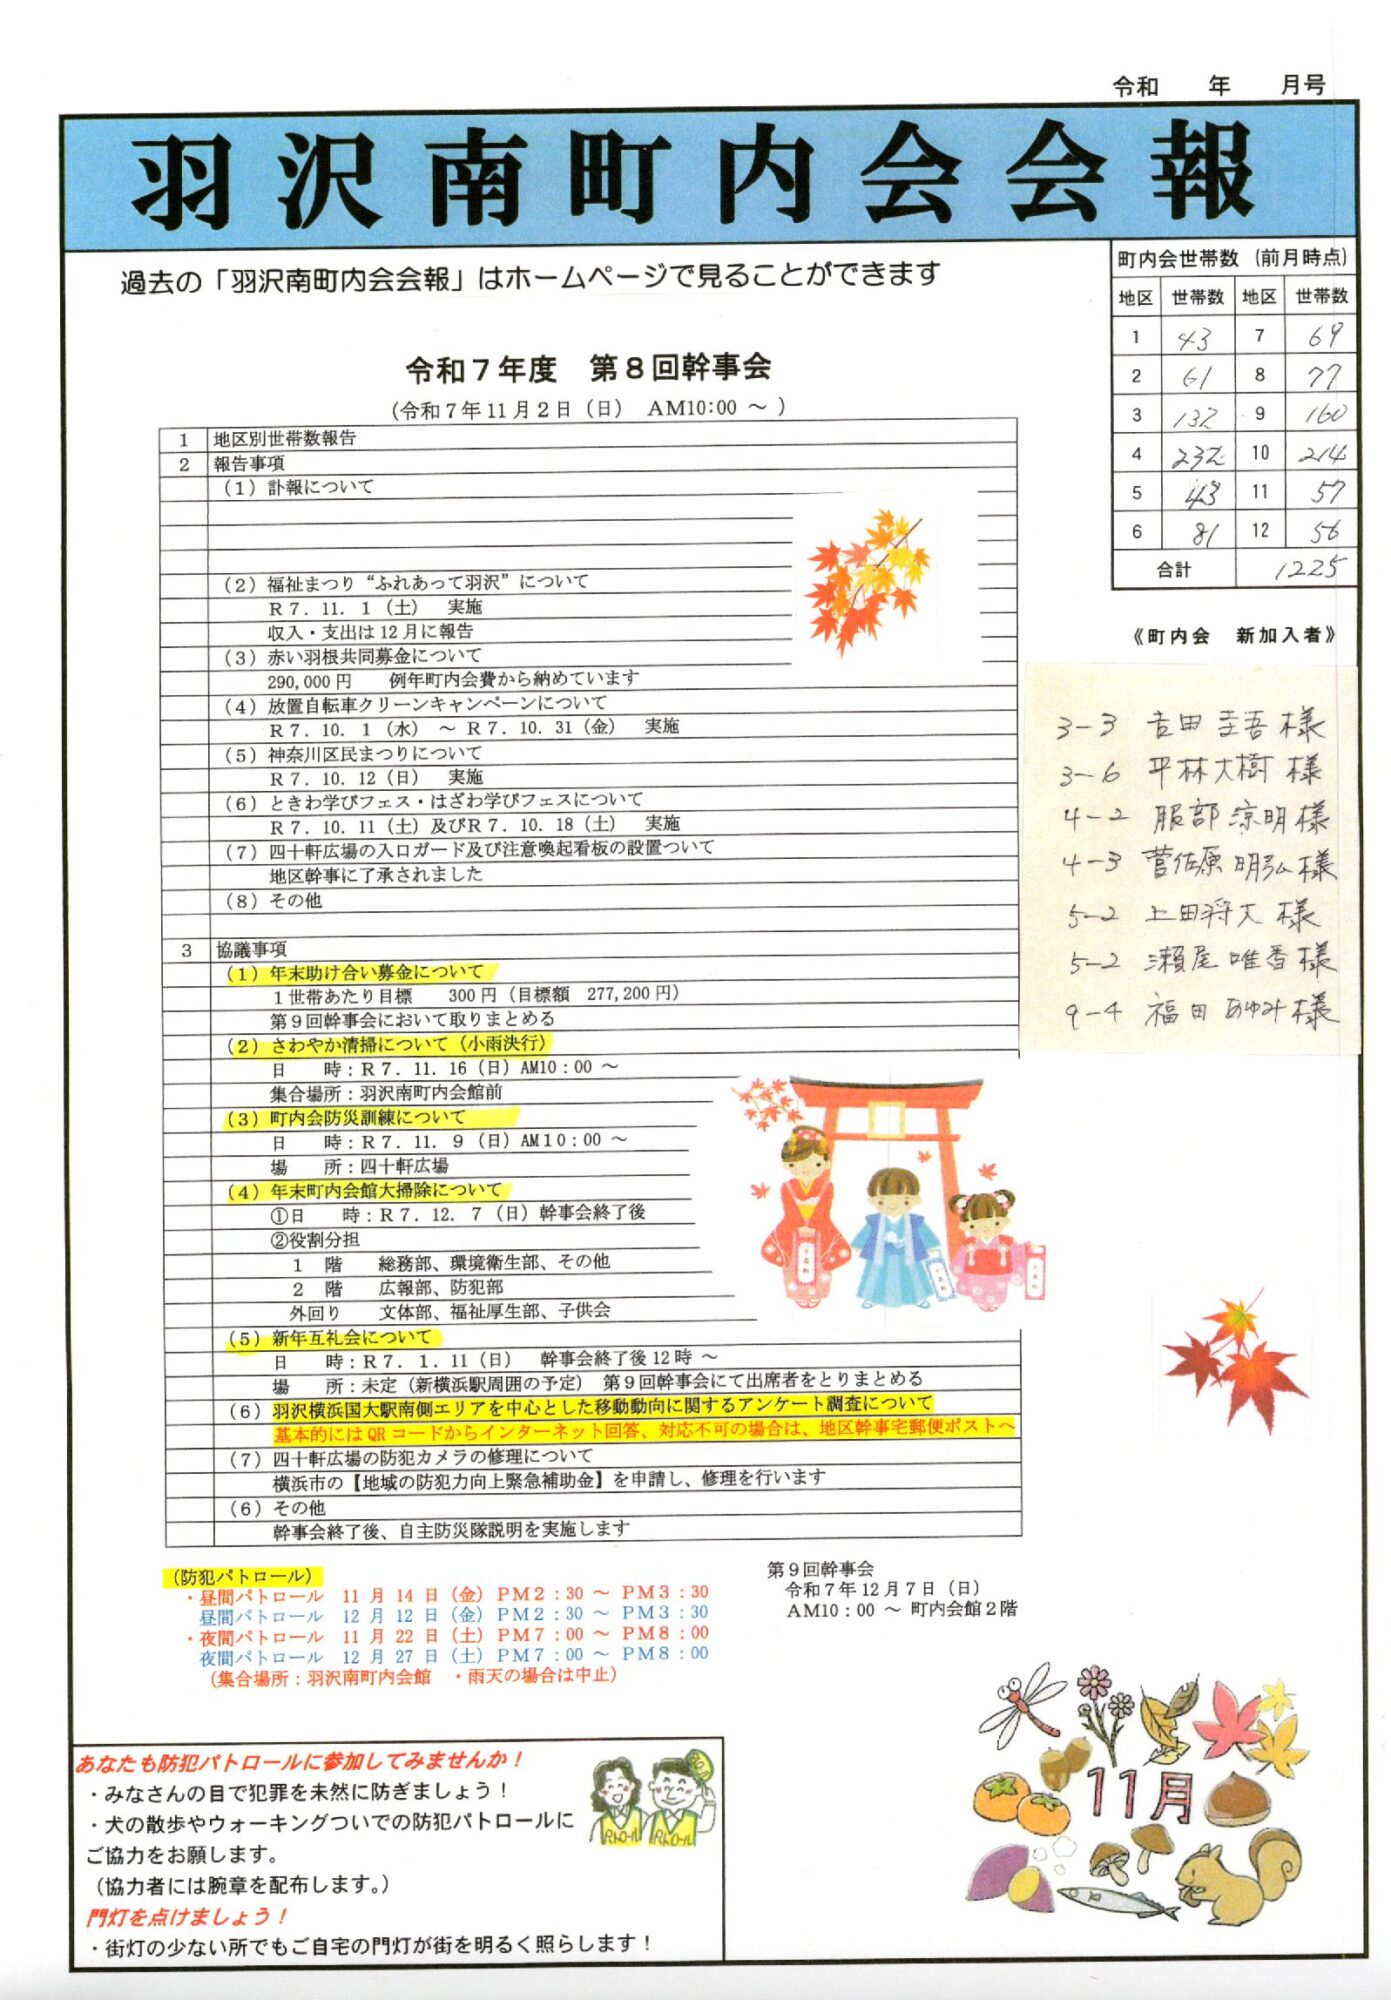 令和　　年　　月号
羽沢南町内会会報
過去の「羽沢南町内会会報」はホームページで見ることができます
町内会世帯数（前月時点）
地区 世帯数 地区 世帯数
1 43 7 69
2 61 8 77
3 132 9 160
4 232 10 214
5 43 11 57
6 81 12 56
合計 1225
《町内会　新加入者》
3-3 吉田 圭吾 様
3-6 平林大樹 様
4-2 服部 涼明 様
4-3 菅佐原 明弘 様
5-2 上田将大 様
5-2 瀬尾 唯香 様
9-4 福田 あゆみ 様
令和７年度　第８回幹事会
（令和７年11月２日（日）　AM10:00 ～ ）
1 地区別世帯数報告
2 報告事項
（1）訃報について
（2）福祉まつり“ふれあって羽沢”について
Ｒ７．11．１（土）　実施
収入・支出は12月に報告
（3）赤い羽根共同募金について
290,000円　　例年町内会費から納めています
（4）放置自転車クリーンキャンペーンについて
Ｒ７．10．１（水）　～Ｒ７．10．31（金）　実施
（5）神奈川区民まつりについて
Ｒ７．10．12（日）　実施
（6）ときわ学びフェス・はざわ学びフェスについて
Ｒ７．10．11（土）及びＲ７．10．18（土）　実施
（7）四十軒広場の入口ガード及び注意喚起看板の設置ついて
地区幹事に了承されました
（8）その他
3 協議事項
（1）年末助け合い募金について
１世帯あたり目標　　300円（目標額　277,200円）
第９回幹事会において取りまとめる
（2）さわやか清掃について（小雨決行）
日　　時：Ｒ７．11．16（日）AM10：00 ～
集合場所：羽沢南町内会館前
（3）町内会防災訓練について
日　　時：Ｒ７．11．９（日）AM10：00 ～
場　　所：四十軒広場
（4）年末町内会館大掃除について
①日　　時：Ｒ７．12．７（日）幹事会終了後
②役割分担
１　階　　総務部、環境衛生部、その他
２　階　　広報部、防犯部
外回り　　文体部、福祉厚生部、子供会
（5）新年互礼会について
日　　時：Ｒ７．１．11（日）　幹事会終了後12時 ～
場　　所：未定（新横浜駅周囲の予定）　第９回幹事会にて出席者をとりまとめる
（6）羽沢横浜国大駅南側エリアを中心とした移動動向に関するアンケート調査について
基本的にはQRコードからインターネット回答、対応不可の場合は、地区幹事宅郵便ポストへ
（7）四十軒広場の防犯カメラの修理について
横浜市の【地域の防犯力向上緊急補助金】を申請し、修理を行います
（6）その他
幹事会終了後、自主防災隊説明を実施します
（防犯パトロール）
・昼間パトロール　11 月 14 日（金）ＰＭ２：30 ～ ＰＭ３：30
昼間パトロール　12 月 12 日（金）ＰＭ２：30 ～ ＰＭ３：30
・夜間パトロール　11 月 22 日（土）ＰＭ７：00 ～ ＰＭ８：00
夜間パトロール　12 月 27 日（土）ＰＭ７：00 ～ ＰＭ８：00
（集合場所：羽沢南町内会館　・雨天の場合は中止）
第９回幹事会
令和７年12月７日（日）
AM10：00 ～ 町内会館２階
あなたも防犯パトロールに参加してみませんか！
・みなさんの目で犯罪を未然に防ぎましょう！
・犬の散歩やウォーキングついでの防犯パトロールに
ご協力をお願します。
（協力者には腕章を配布します。）
門灯を点けましょう！
・街灯の少ない所でもご自宅の門灯が街を明るく照らします！
パトロール パトロール
11月